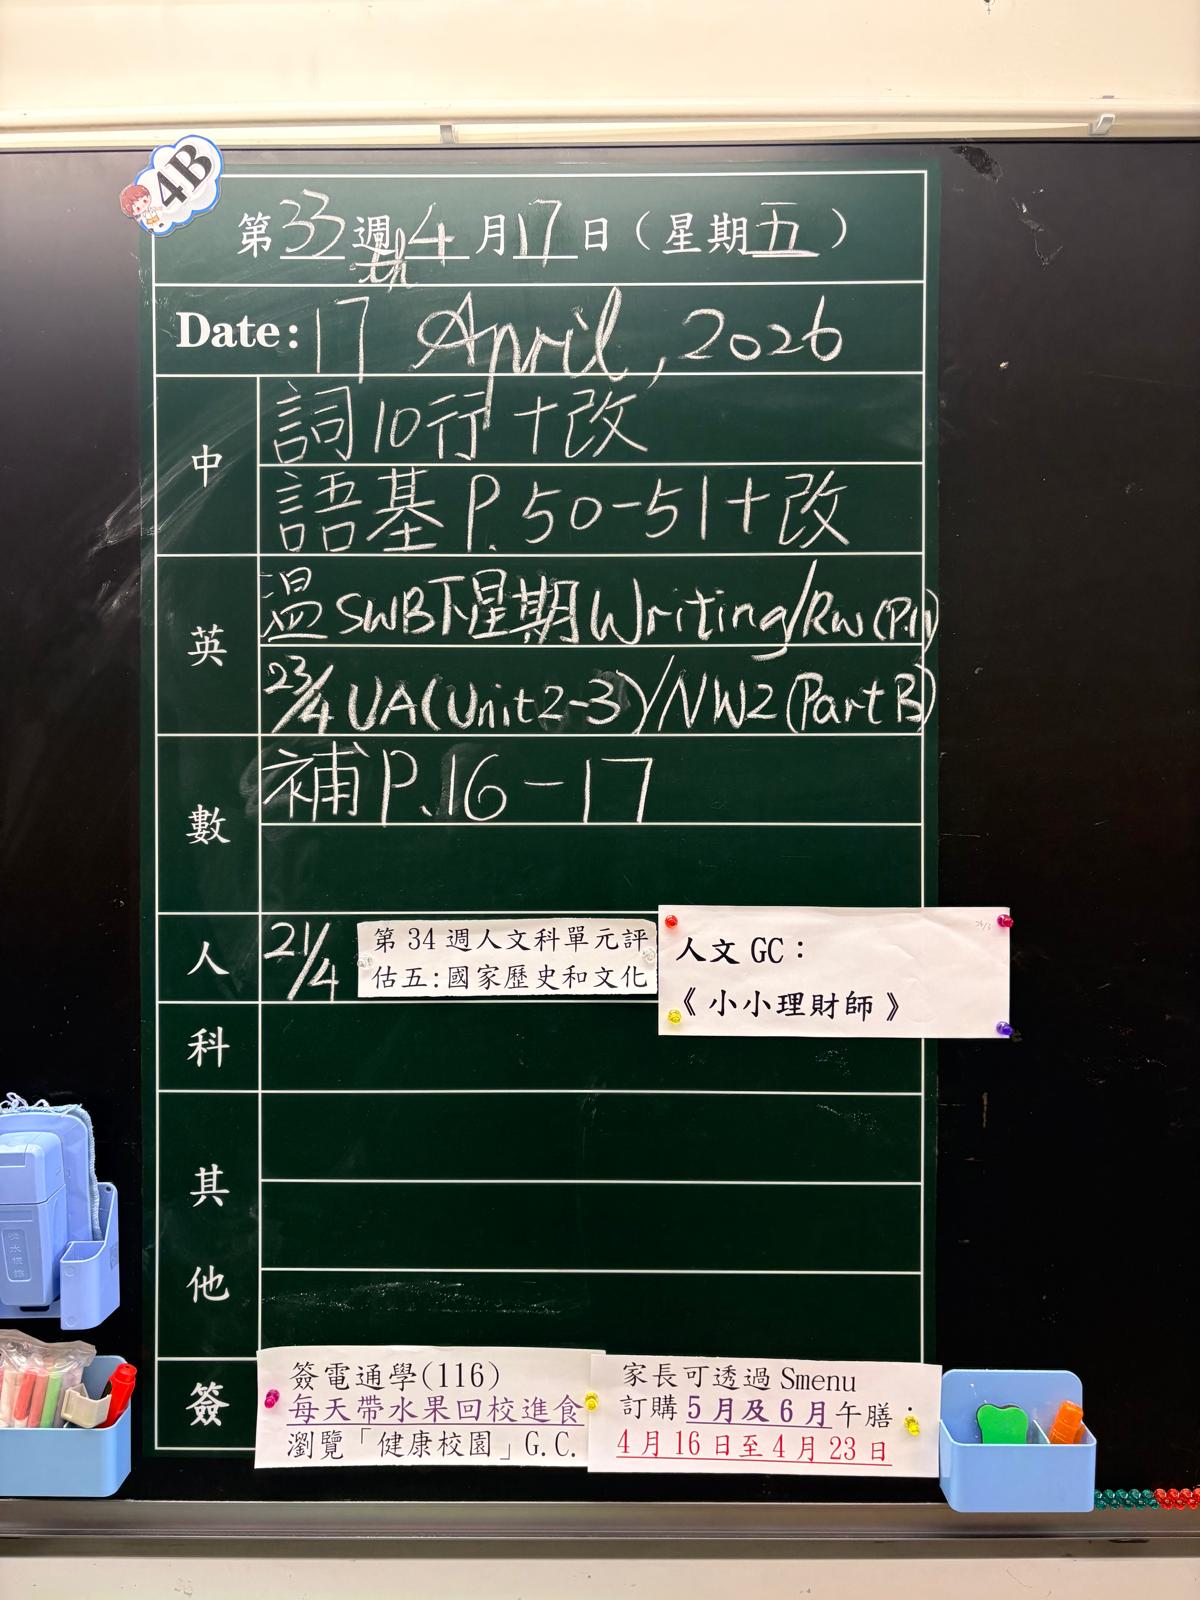 4B
第33週 4月17日（星期五）
th
Date: 17 April, 2026
中
詞10行+改
語基P.50-51+改
英
溫SWB下星期Writing/RW(P.11)
23/4 UA(Unit2-3)/NW2(Part B)
數
補P.16-17
人科
21/4 第34週人文科單元評
估五:國家歷史和文化
人文GC：
《小小理財師》
其他
簽
簽電通學(116)
每天帶水果回校進食
瀏覽「健康校園」G.C.
家長可透過Smenu
訂購5月及6月午膳：
4月16日至4月23日